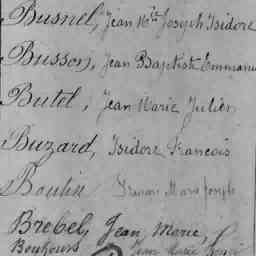 Busnel, Jean M. Joseph Isidore
Busson, Jean Baptiste Emmanu
Butel, Jean Marie Julien
Buzard, Isidore Francois
Boulin Marie Joseph
Brebel, Jean Marie,
Bouhours Jean Marie